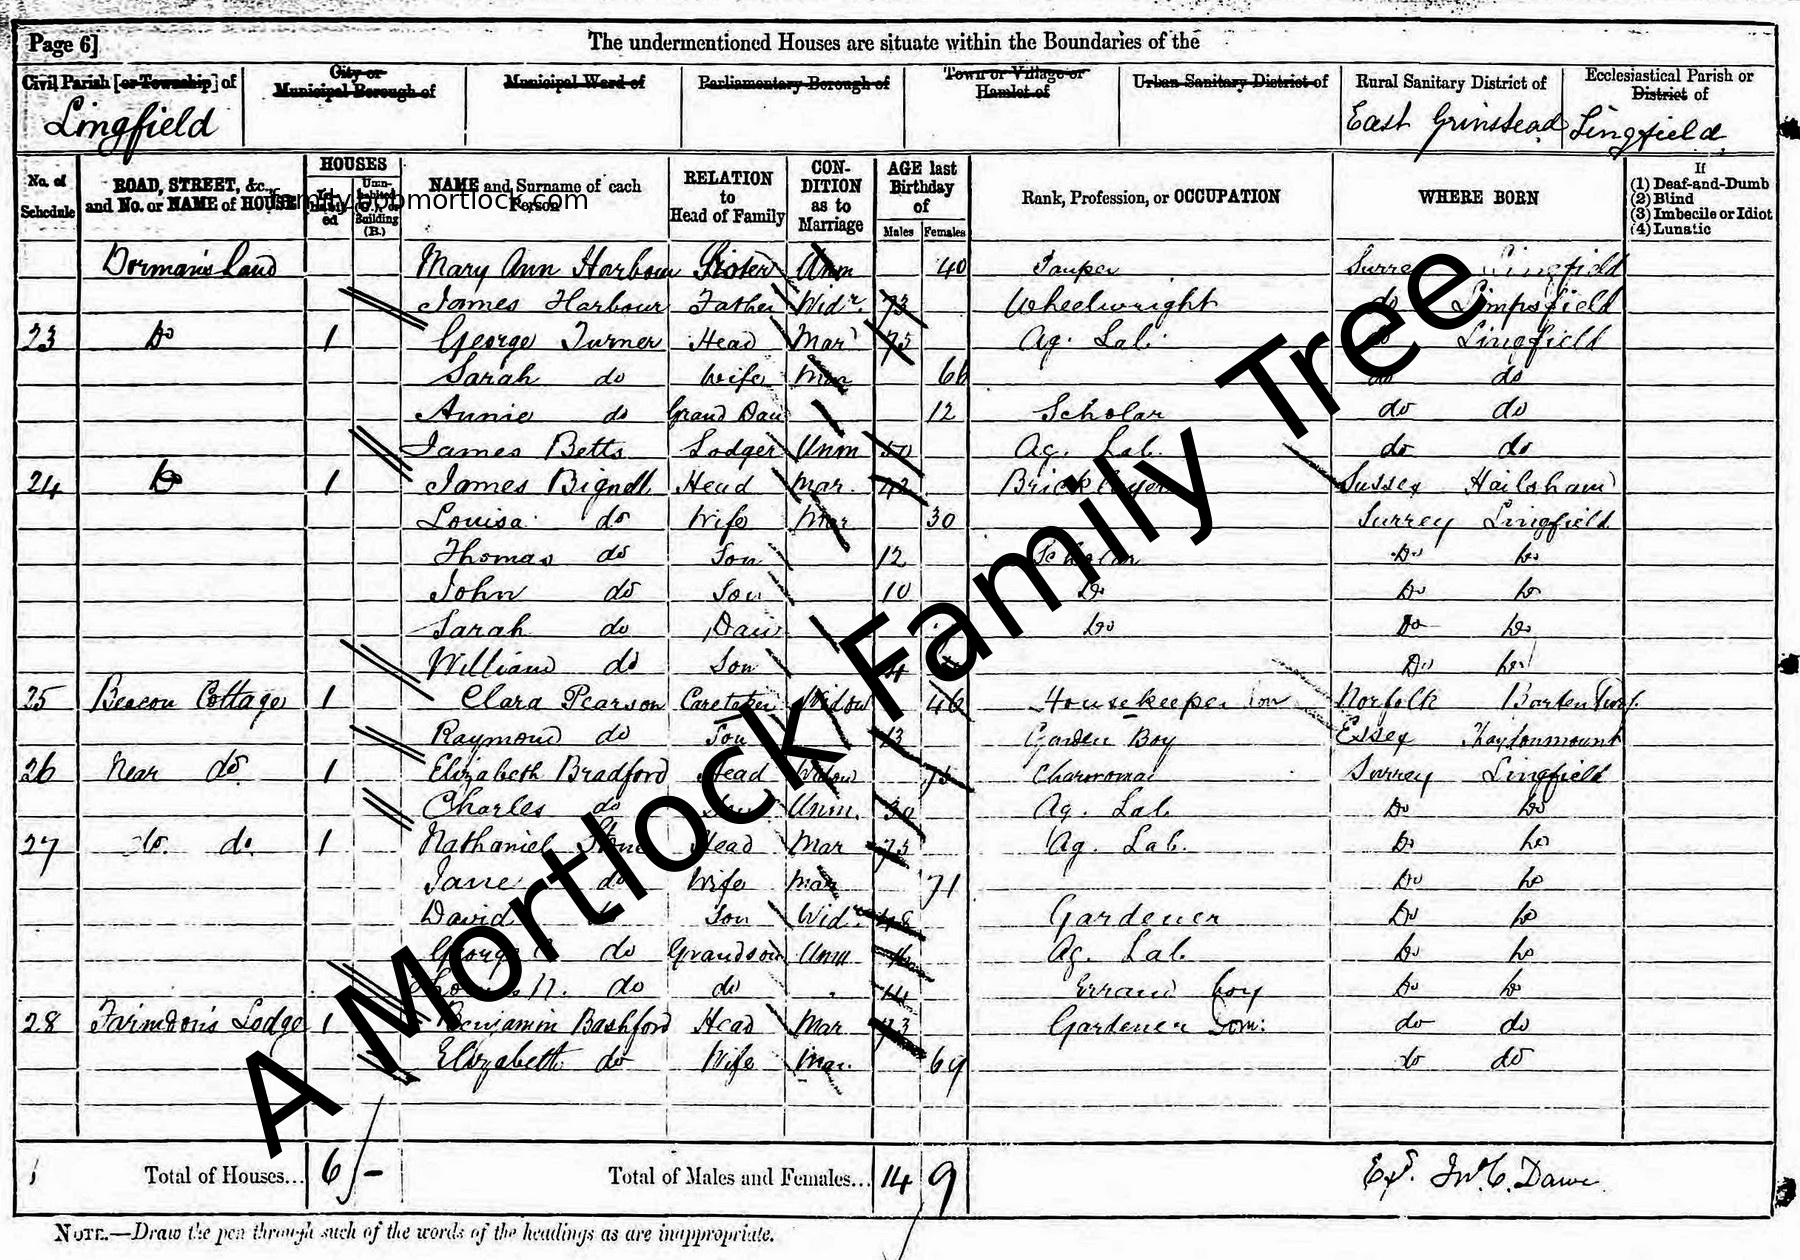 Page 6]
The undermentioned Houses are situate within the Boundaries of the
Civil Parish [or Township] of
Lingfield
City or Municipal Borough of
Municipal Ward of
Parliamentary Borough of
Town or Village or Hamlet of
Urban Sanitary District of
Rural Sanitary District of
East Grinstead
Ecclesiastical Parish or District of
Lingfield
No. of Schedule
ROAD, STREET, &c., and No. or NAME of HOUSE
HOUSES
NAME and Surname of each Person
RELATION to Head of Family
CON-DITION as to Marriage
AGE last Birthday of
Males Females
Rank, Profession, or OCCUPATION
WHERE BORN
If
(1) Deaf-and-Dumb
(2) Blind
(3) Imbecile or Idiot
(4) Lunatic
family.bobmortlock.com
Dorman's Land Mary Ann Harbour Sister Unm 40 Pauper Surrey Lingfield
James Harbour Father Widr. 73 Wheelwright do Limpsfield
23 Do 1 George Turner Head Mar 75 Ag. Lab. do Lingfield
Sarah do Wife Mar 66 do do
Annie do Grand Dau 12 Scholar do do
James Betts Lodger Unm 50 Ag. Lab. do do
24 Do 1 James Bignell Head Mar. 42 Bricklayer Sussex Hailsham
Louisa do Wife Mar 30 Surrey Lingfield
Thomas do Son 12 Scholar Do Do
John do Son 10 Do Do Do
Sarah do Dau Do Do Do
William do Son 4 Do Do
25 Beacon Cottage 1 Clara Pearson Caretaker Widow 46 Housekeeper Dom Norfolk Barton
Raymond do Son 13 Garden Boy Essex
26 Near do 1 Elizabeth Bradford Head Widow 75 Charwoman Surrey Lingfield
Charles do Son Unm. 30 Ag. Lab. Do Do
27 do. do. 1 Nathaniel Stone Head Mar 75 Ag. Lab. Do Do
Jane do Wife Mar 71 Do Do
David do Son Widr. 48 Gardener Do Do
George do Grandson Unm Ag. Lab. Do Do
Thomas N. do do 14 Errand boy Do Do
28 Farindon's Lodge 1 Benjamin Bashford Head Mar 73 Gardener Dom: do do
Elizabeth do Wife Mar. 69 do do
A Mortlock Family Tree
Total of Houses... 6 -
Total of Males and Females... 14 9
NOTE.—Draw the pen through such of the words of the headings as are inappropriate.